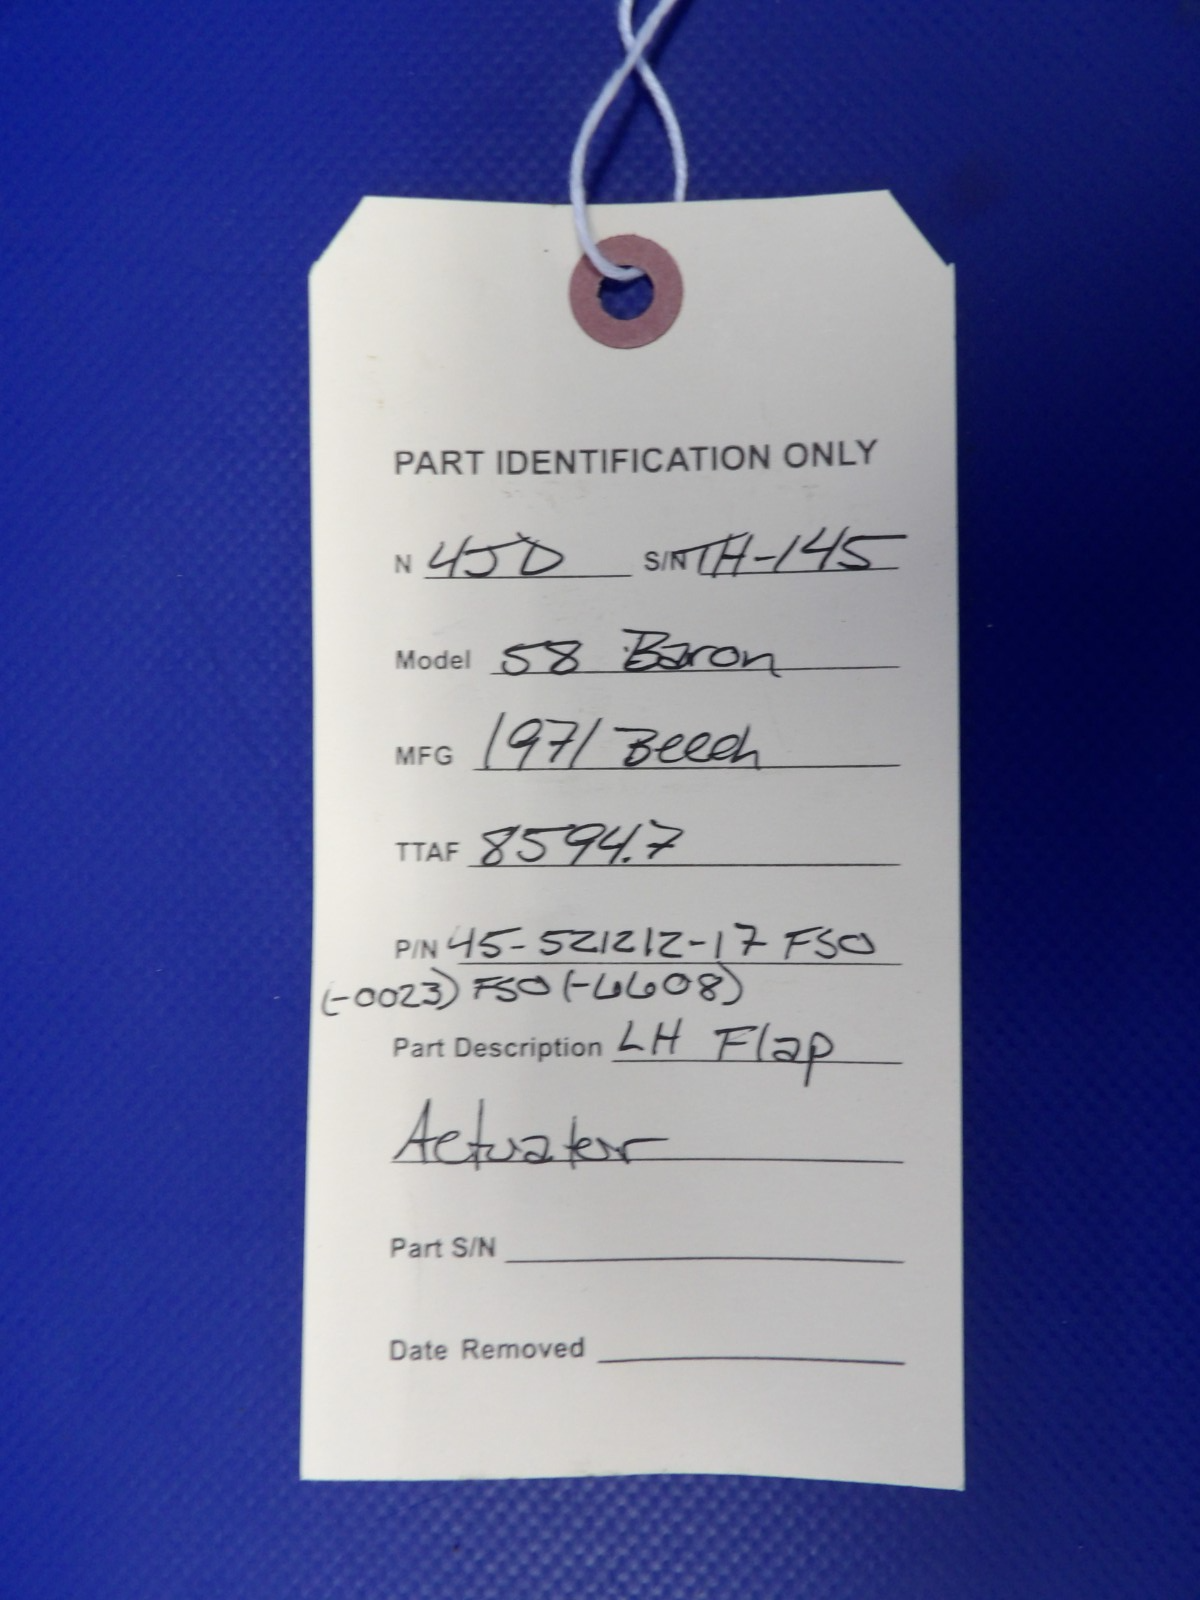 PART IDENTIFICATION ONLY
N 4JD S/N TH-145
Model 58 Baron
MFG 1971 Beech
TTAF 8594.7
P/N 45-521212-17 FSO
(-0023) FSO (-6608)
Part Description LH Flap
Actuator
Part S/N
Date Removed